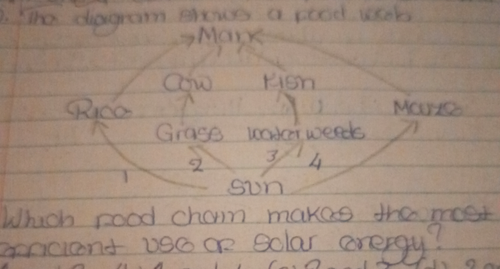 The diagram shows a food web
Man
Cow Fish
Rice Maize
Grass water weeds
1 2 3 4
sun
Which food chain makes the most
efficient use of solar energy?